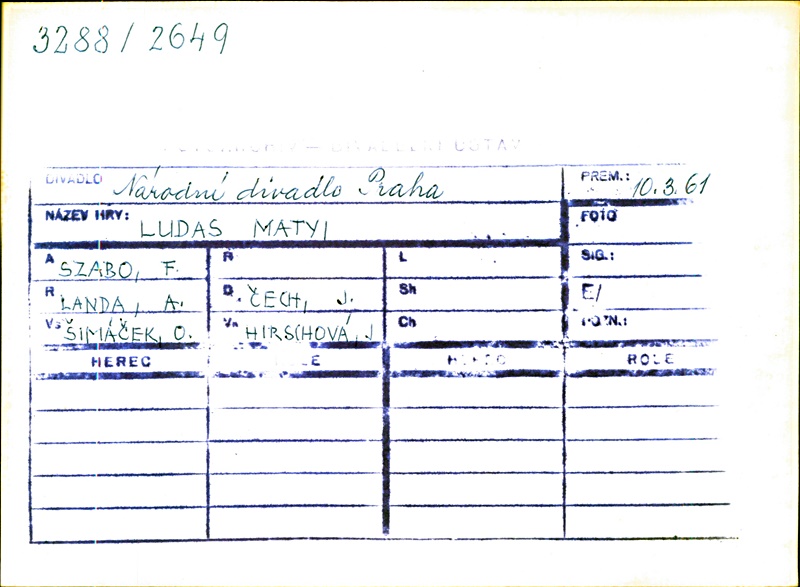 3288/2649
DIVADLO Národní divadlo Praha PREM.: 10.3.61
NÁZEV HRY: LUDAS MATYI FOTO
A SZABO, F. R L SIG.:
R LANDA, A. D. ČECH, J. Sh E/
Vs ŠIMÁČEK, O. HIRSCHOVÁ, J Ch POZN.:
HEREC ROLE